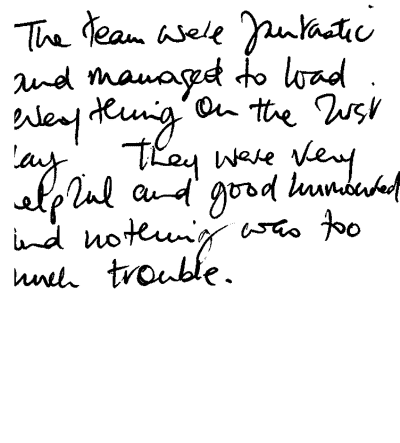 The team were fantastic
and managed to load
everything on the first
day They were very
helpful and good humoured
and nothing was too
much trouble.